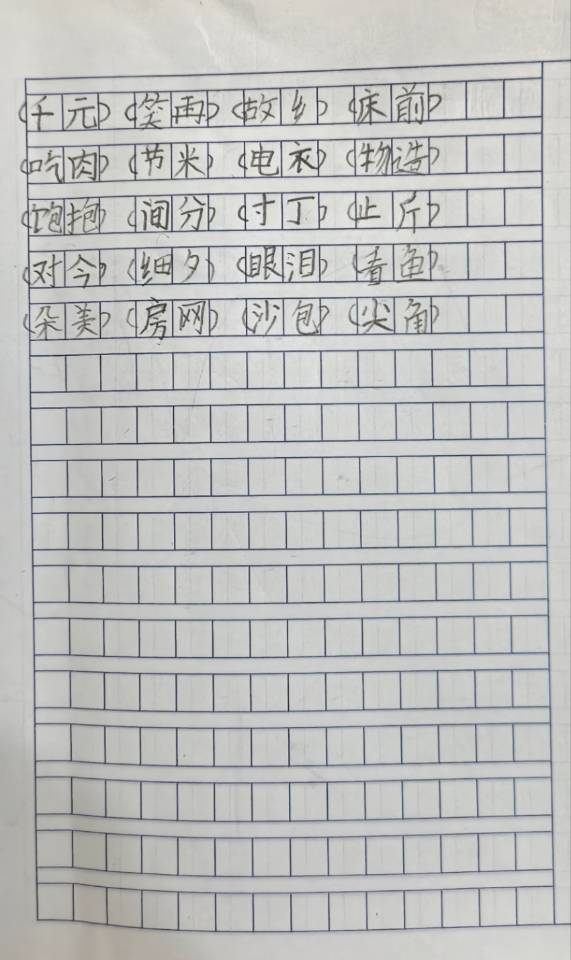 (千元) (笑雨) (故乡) (床前)
(吃肉) (节米) (电衣) (物造)
(饱抱) (间分) (寸丁) (止斤)
(对今) (细夕) (眼泪) (青鱼)
(朵美) (房网) (沙包) (尖角)